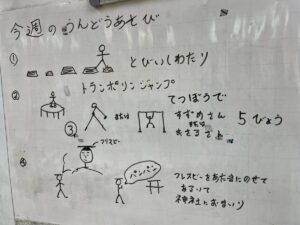 今週のうんどうあそび
① とびいしわたり
② トランポリンジャンプ
③ または てつぼうで
すずめさん
または
おさるさん
5びょう
④ フリスビー
パンパン
フリスビーをあたまにのせて
あるいて
神社におまいり